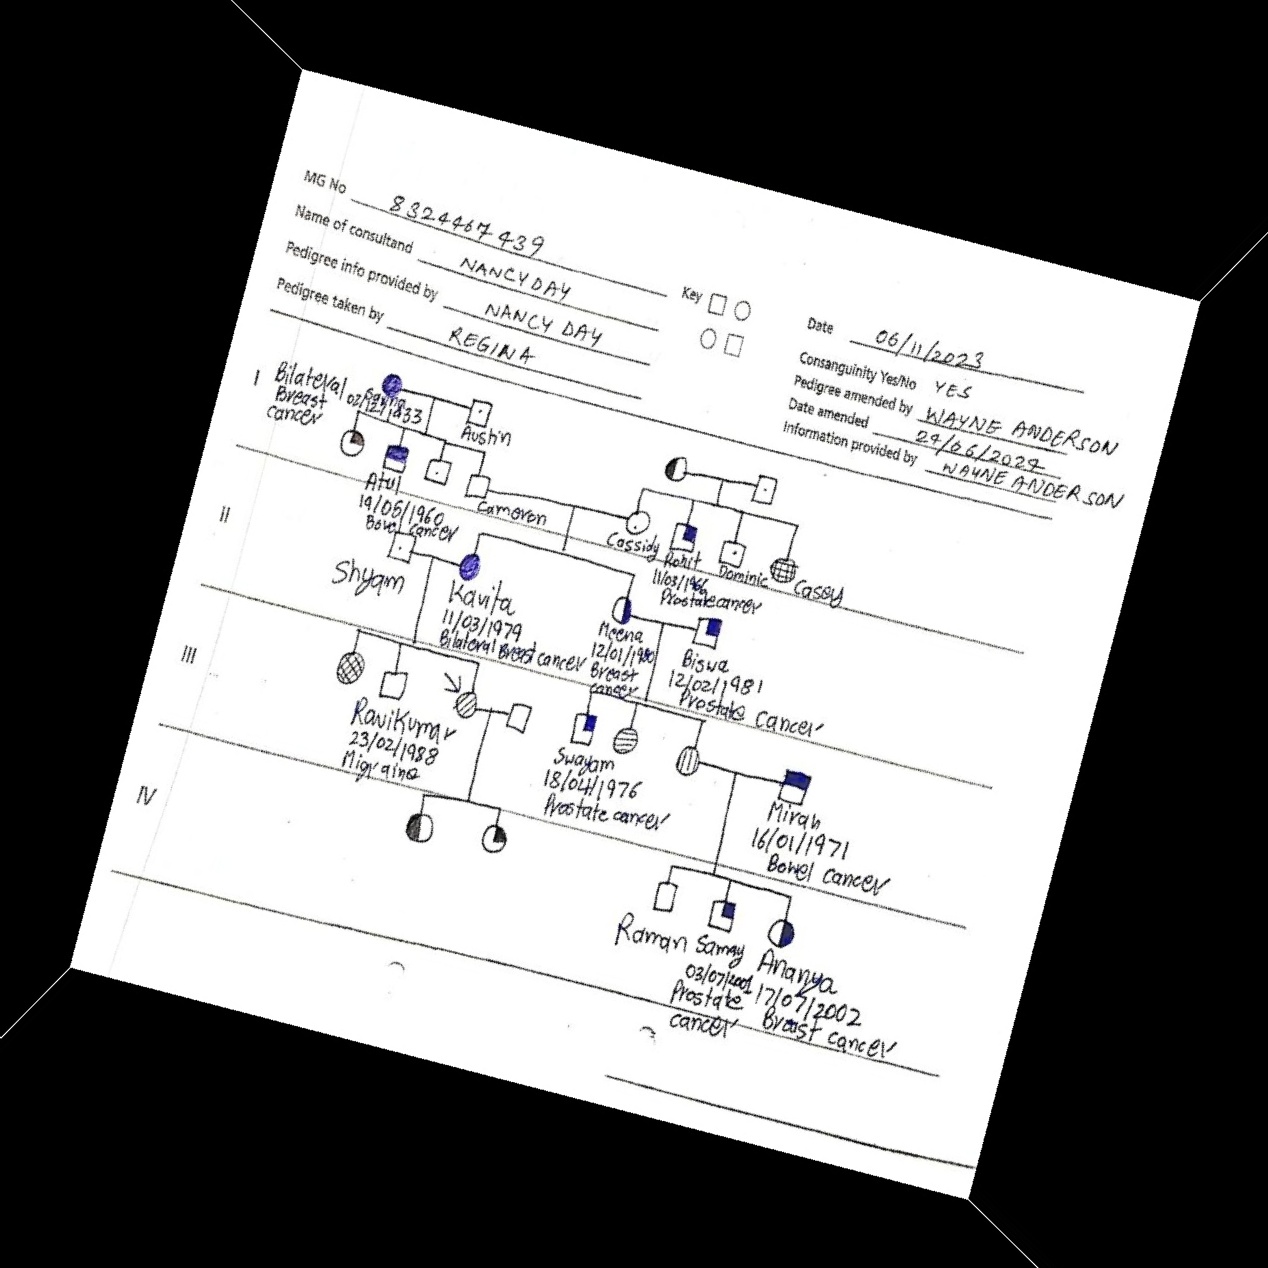 MG No 8324467439
Name of consultand NANCY DAY
Pedigree info provided by NANCY DAY
Pedigree taken by REGINA
Key
Date 06/11/2023
Consanguinity Yes/No YES
Pedigree amended by WAYNE ANDERSON
Date amended 24/06/2024
Information provided by WAYNE ANDERSON
I
Bilateral
Breast
cancer
02/12/1933
Austin
Atul
19/05/1960
Bowl cancer
Cameron
Cassidy
Rohit
11/03/1966
Prostate cancer
Dominic
Casey
II
Shyam
Kavita
11/03/1979
Bilateral Breast cancer
Meena
12/01/1980
Breast
cancer
Biswa
12/02/1981
Prostate cancer
III
RaviKumar
23/02/1988
Migraine
Swayam
18/04/1976
Prostate cancer
Mirah
16/01/1971
Bowel cancer
IV
Raman
Samay
03/07/2001
Prostate
cancer
Ananya
17/07/2002
Breast cancer